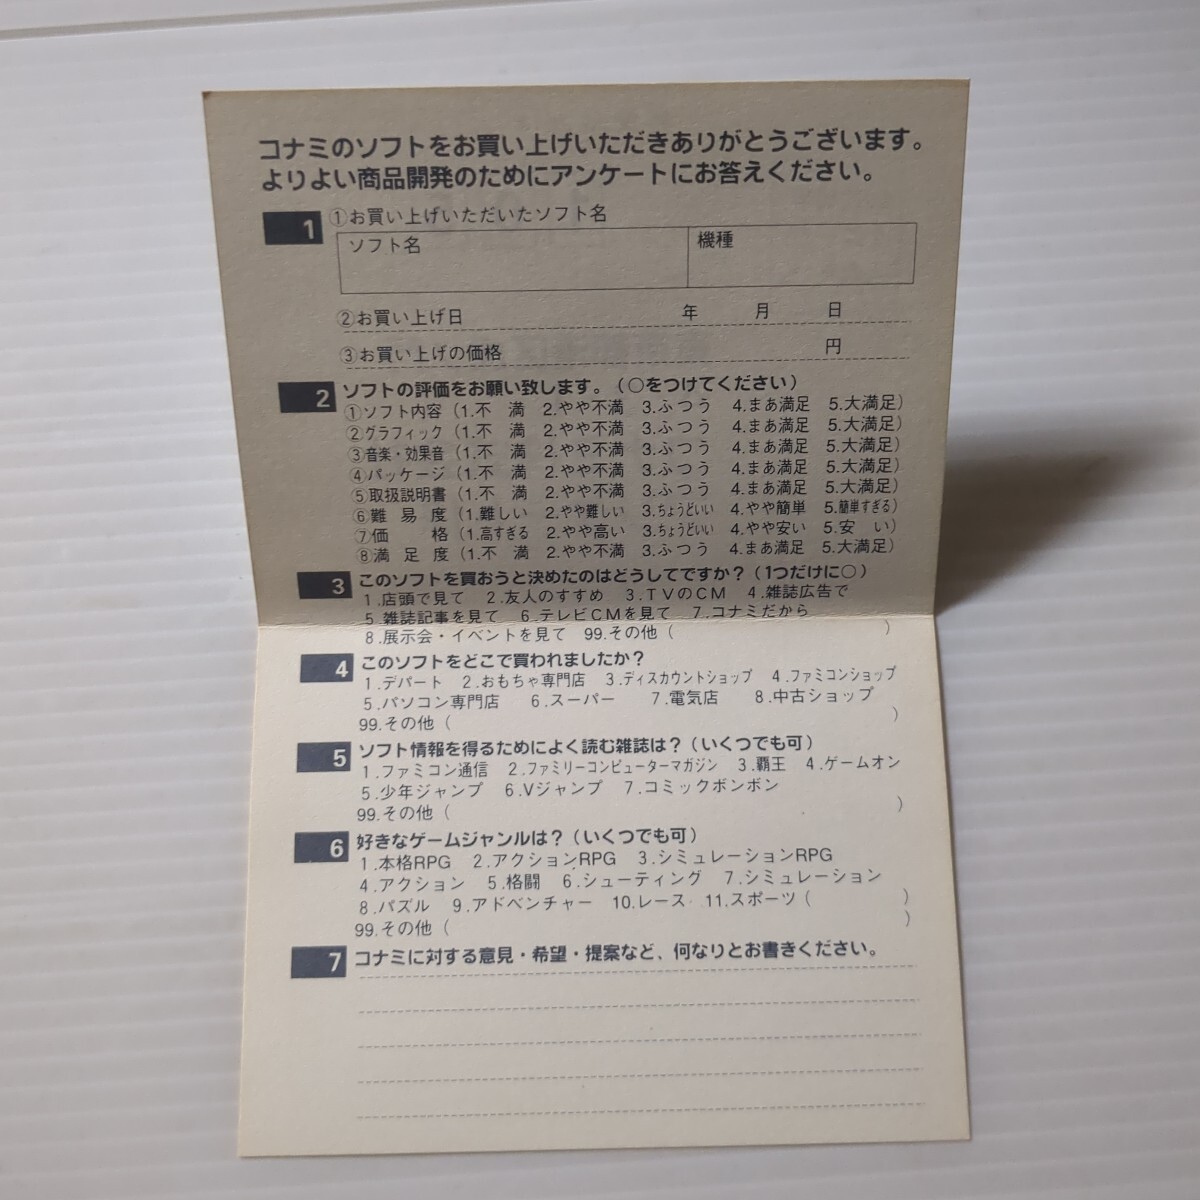 コナミのソフトをお買い上げいただきありがとうございます。
よりよい商品開発のためにアンケートにお答えください。
1 ①お買い上げいただいたソフト名
ソフト名 機種
②お買い上げ日 年 月 日
③お買い上げの価格 円
2 ソフトの評価をお願い致します。(○をつけてください)
①ソフト内容(1.不 満 2.やや不満 3.ふつう 4.まあ満足 5.大満足)
②グラフィック(1.不 満 2.やや不満 3.ふつう 4.まあ満足 5.大満足)
③音楽・効果音(1.不 満 2.やや不満 3.ふつう 4.まあ満足 5.大満足)
④パッケージ(1.不 満 2.やや不満 3.ふつう 4.まあ満足 5.大満足)
⑤取扱説明書(1.不 満 2.やや不満 3.ふつう 4.まあ満足 5.大満足)
⑥難易度(1.難しい 2.やや難しい 3.ちょうどいい 4.やや簡単 5.簡単すぎる)
⑦価 格(1.高すぎる 2.やや高い 3.ちょうどいい 4.やや安い 5.安 い)
⑧満足度(1.不 満 2.やや不満 3.ふつう 4.まあ満足 5.大満足)
3 このソフトを買おうと決めたのはどうしてですか?(1つだけに○)
1.店頭で見て 2.友人のすすめ 3.TVのCM 4.雑誌広告で
5.雑誌記事を見て 6.テレビCMを見て 7.コナミだから
8.展示会・イベントを見て 99.その他( )
4 このソフトをどこで買われましたか?
1.デパート 2.おもちゃ専門店 3.ディスカウントショップ 4.ファミコンショップ
5.パソコン専門店 6.スーパー 7.電気店 8.中古ショップ
99.その他( )
5 ソフト情報を得るためによく読む雑誌は?(いくつでも可)
1.ファミコン通信 2.ファミリーコンピューターマガジン 3.覇王 4.ゲームオン
5.少年ジャンプ 6.Vジャンプ 7.コミックボンボン
99.その他( )
6 好きなゲームジャンルは?(いくつでも可)
1.本格RPG 2.アクションRPG 3.シミュレーションRPG
4.アクション 5.格闘 6.シューティング 7.シミュレーション
8.パズル 9.アドベンチャー 10.レース 11.スポーツ( )
99.その他( )
7 コナミに対する意見・希望・提案など、何なりとお書きください。